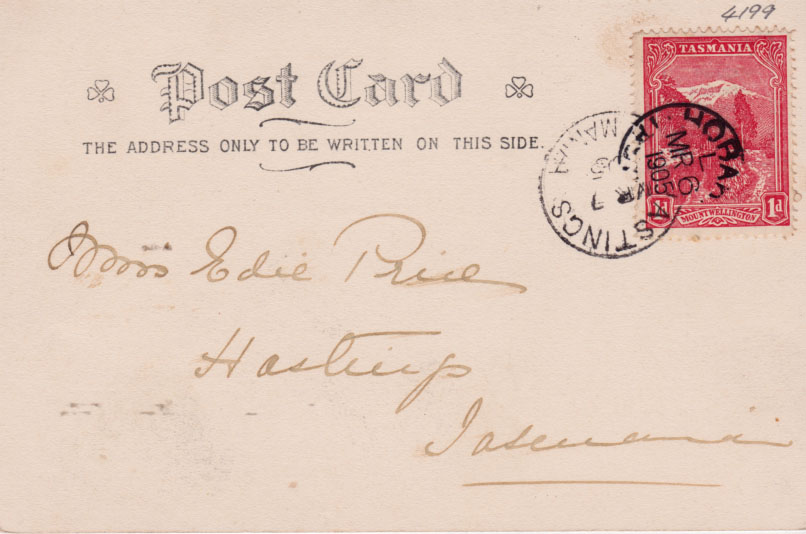 4199
Post Card
THE ADDRESS ONLY TO BE WRITTEN ON THIS SIDE.
TASMANIA
MOUNT WELLINGTON
1d
HOBAR
MR 6
1905
STINGS
MR 7
Miss Edie Price
Hastings
Tasmania